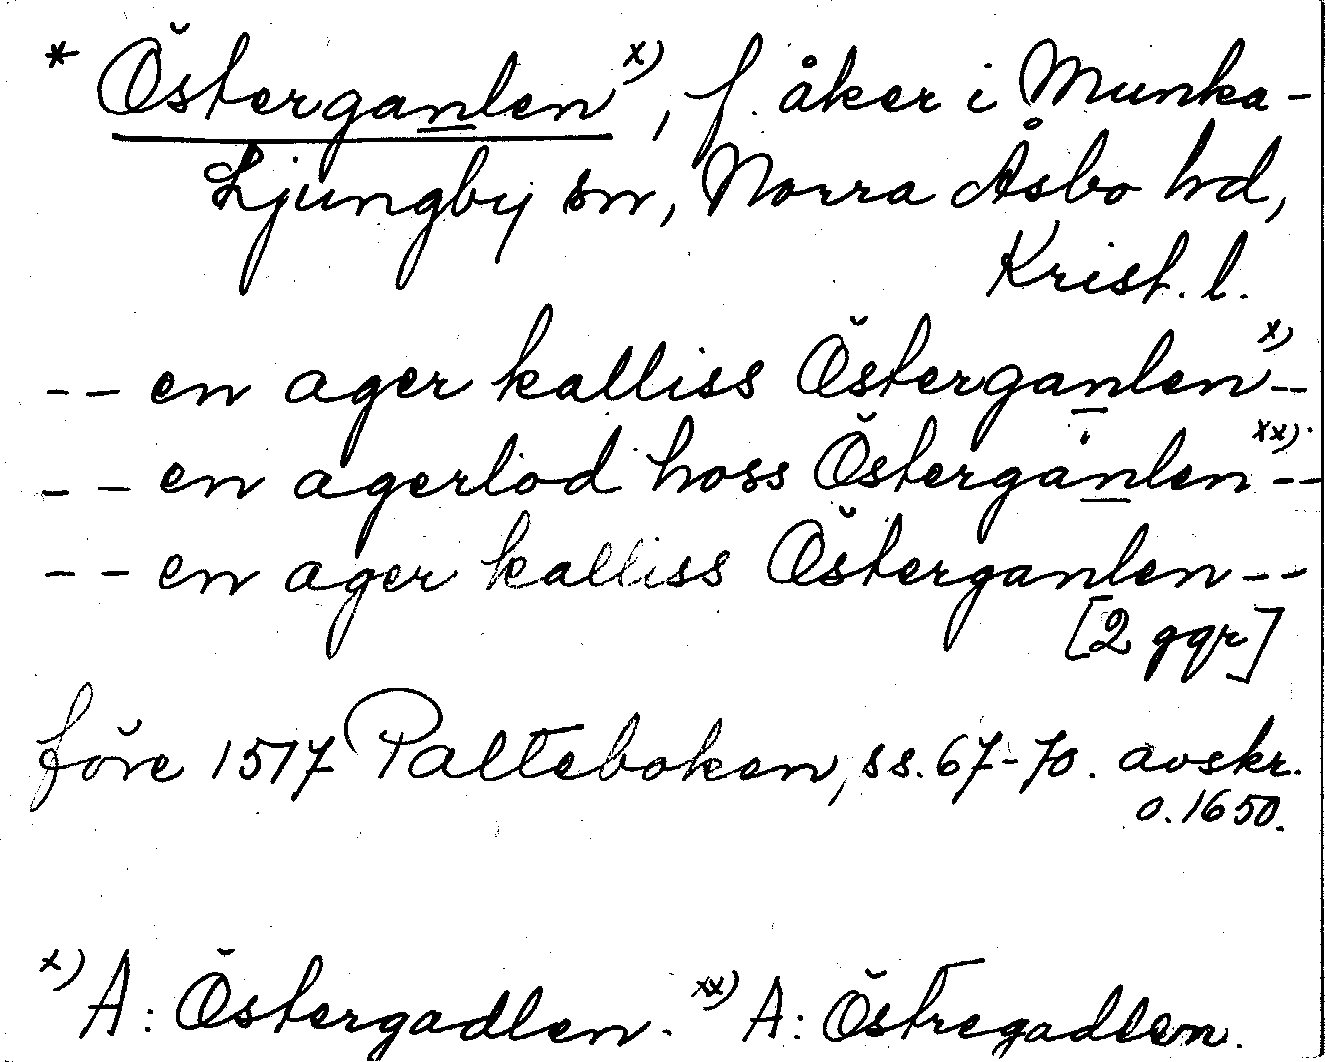 * Österganlen x), f. åker i Munka-
Ljungby sn, Norra Åsbo hd,
Krist. l.
-- en ager kalliss Österganlen x)--
-- en agerlod hoss Östergånlen xx)--
-- en ager kalliss Östergånlen--
[2 ggr]
före 1517 Palteboken, ss. 67-70. avskr.
o. 1650.
x) A: Östergadlen. xx) A: Östregadlen.